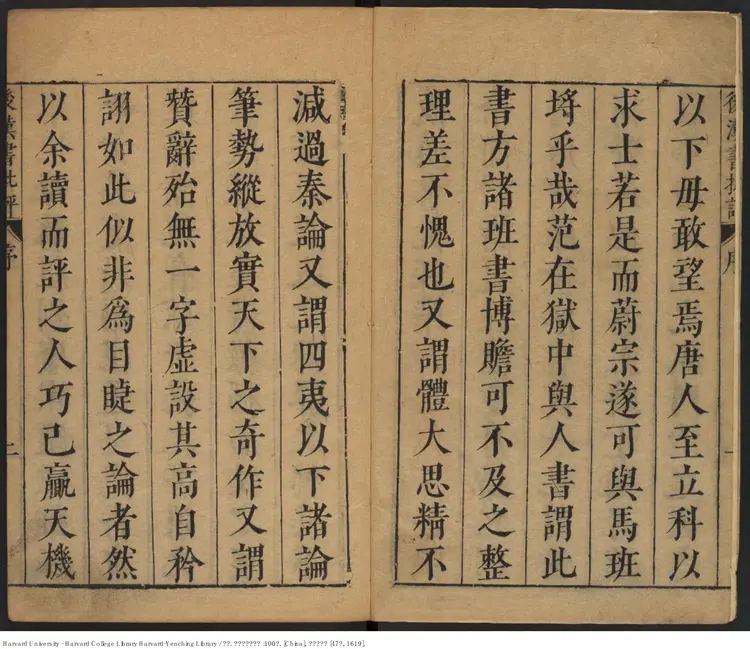 以下毋敢望焉唐人至立科以
求士若是而蔚宗遂可與馬班
埒乎哉范在獄中與人書謂此
書方諸班書博贍可不及之整
理差不愧也又謂體大思精不
減過秦論又謂四夷以下諸論
筆勢縱放實天下之奇作又謂
贊辭殆無一字虛設其高自矜
詡如此似非爲目睫之論者然
以余讀而評之人巧已贏天機
後漢書批評
序
Harvard University - Harvard College Library Harvard-Yenching Library / ??. ??????? :100?. [China], ????? [47?, 1619].